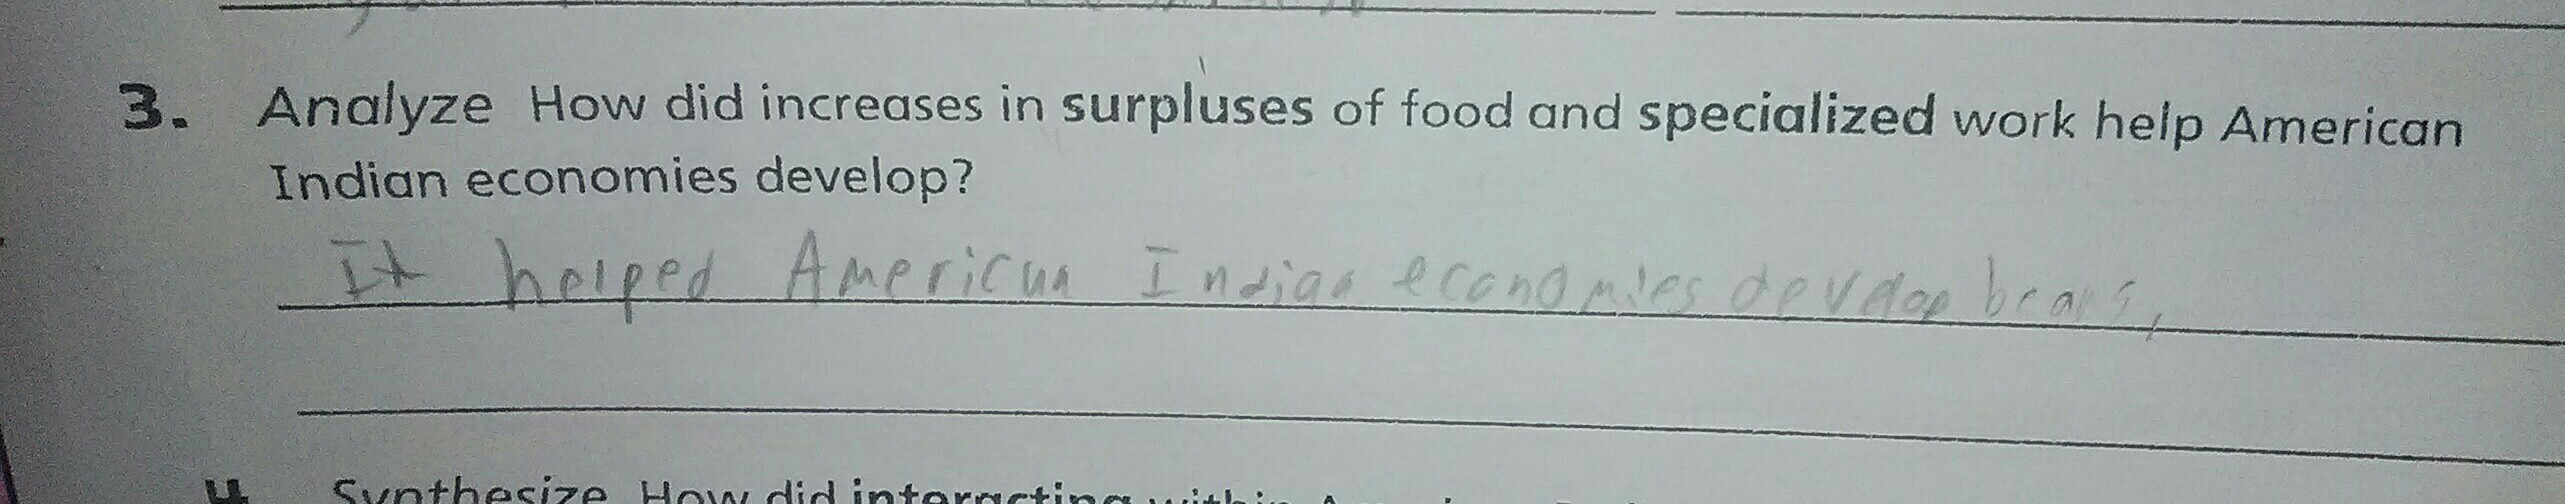 3. Analyze How did increases in surpluses of food and specialized work help American
Indian economies develop?
It helped American Indian economies develop beans,
4 Synthesize How did interacting